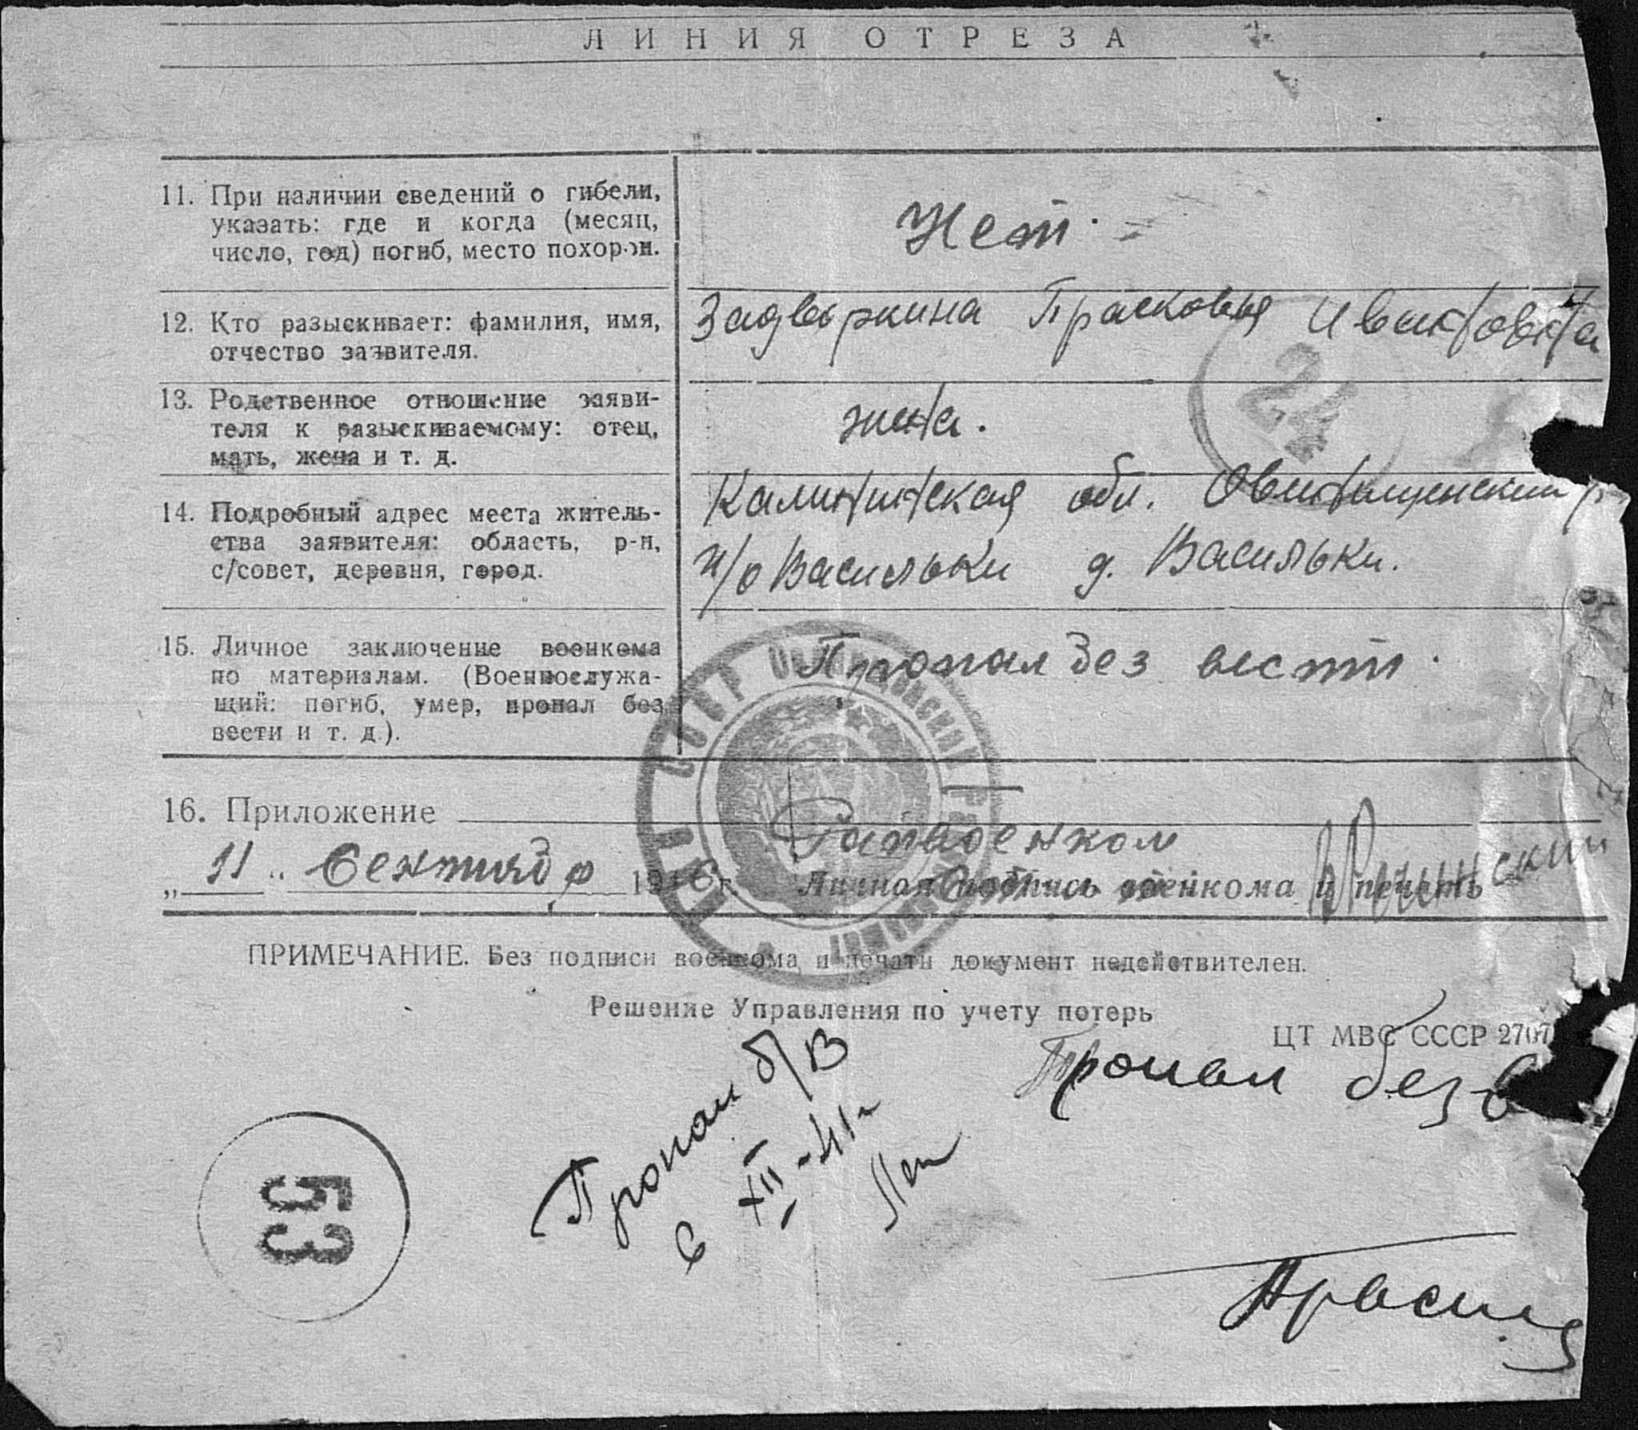 ЛИНИЯ ОТРЕЗА
11. При наличии сведений о гибели,
указать: где и когда (месяц,
число, год) погиб, место похорон.
Нет.
12. Кто разыскивает: фамилия, имя,
отчество заявителя.
Задворкина Прасковья Ивановна
13. Родственное отношение заяви-
теля к разыскиваемому: отец,
мать, жена и т. д.
жена.
14. Подробный адрес места житель-
ства заявителя: область, р-н,
с/совет, деревня, город.
Калининская обл. Овинищенский р
п/о Васильки д. Васильки.
15. Личное заключение военкома
по материалам. (Военнослужа-
щий: погиб, умер, пропал без
вести и т. д.).
Пропал без вести.
16. Приложение
Райвоенком
„11" Сентябр 1946 г. Личная подпись военкома и печать
ПРИМЕЧАНИЕ. Без подписи военкома и печати документ недействителен.
Решение Управления по учету потерь
ЦТ МВС СССР 2707
Пропал без в
Пропал б/в
в XII-41г
53
24